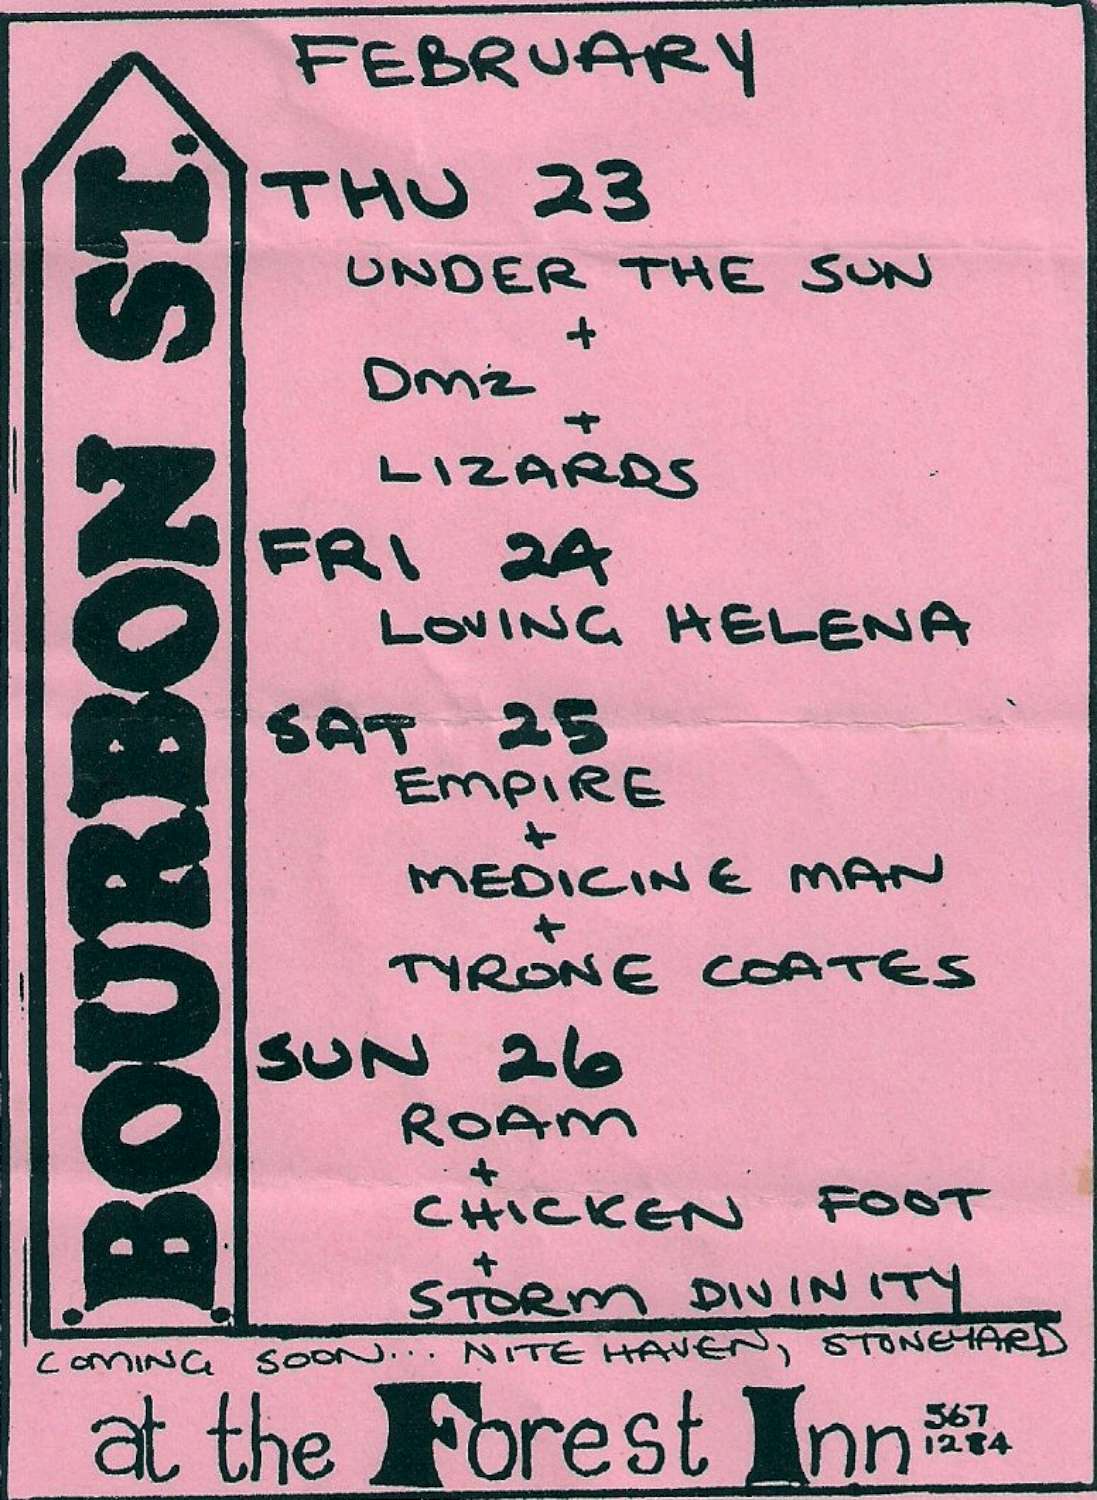 FEBRUARY
BOURBON ST.
THU 23
UNDER THE SUN
+
DMZ
+
LIZARDS
FRI 24
LOVING HELENA
SAT 25
EMPIRE
+
MEDICINE MAN
+
TYRONE COATES
SUN 26
ROAM
+
CHICKEN FOOT
+
STORM DIVINITY
COMING SOON... NITE HAVEN, STONEHARD
at the Forest Inn 567
1284